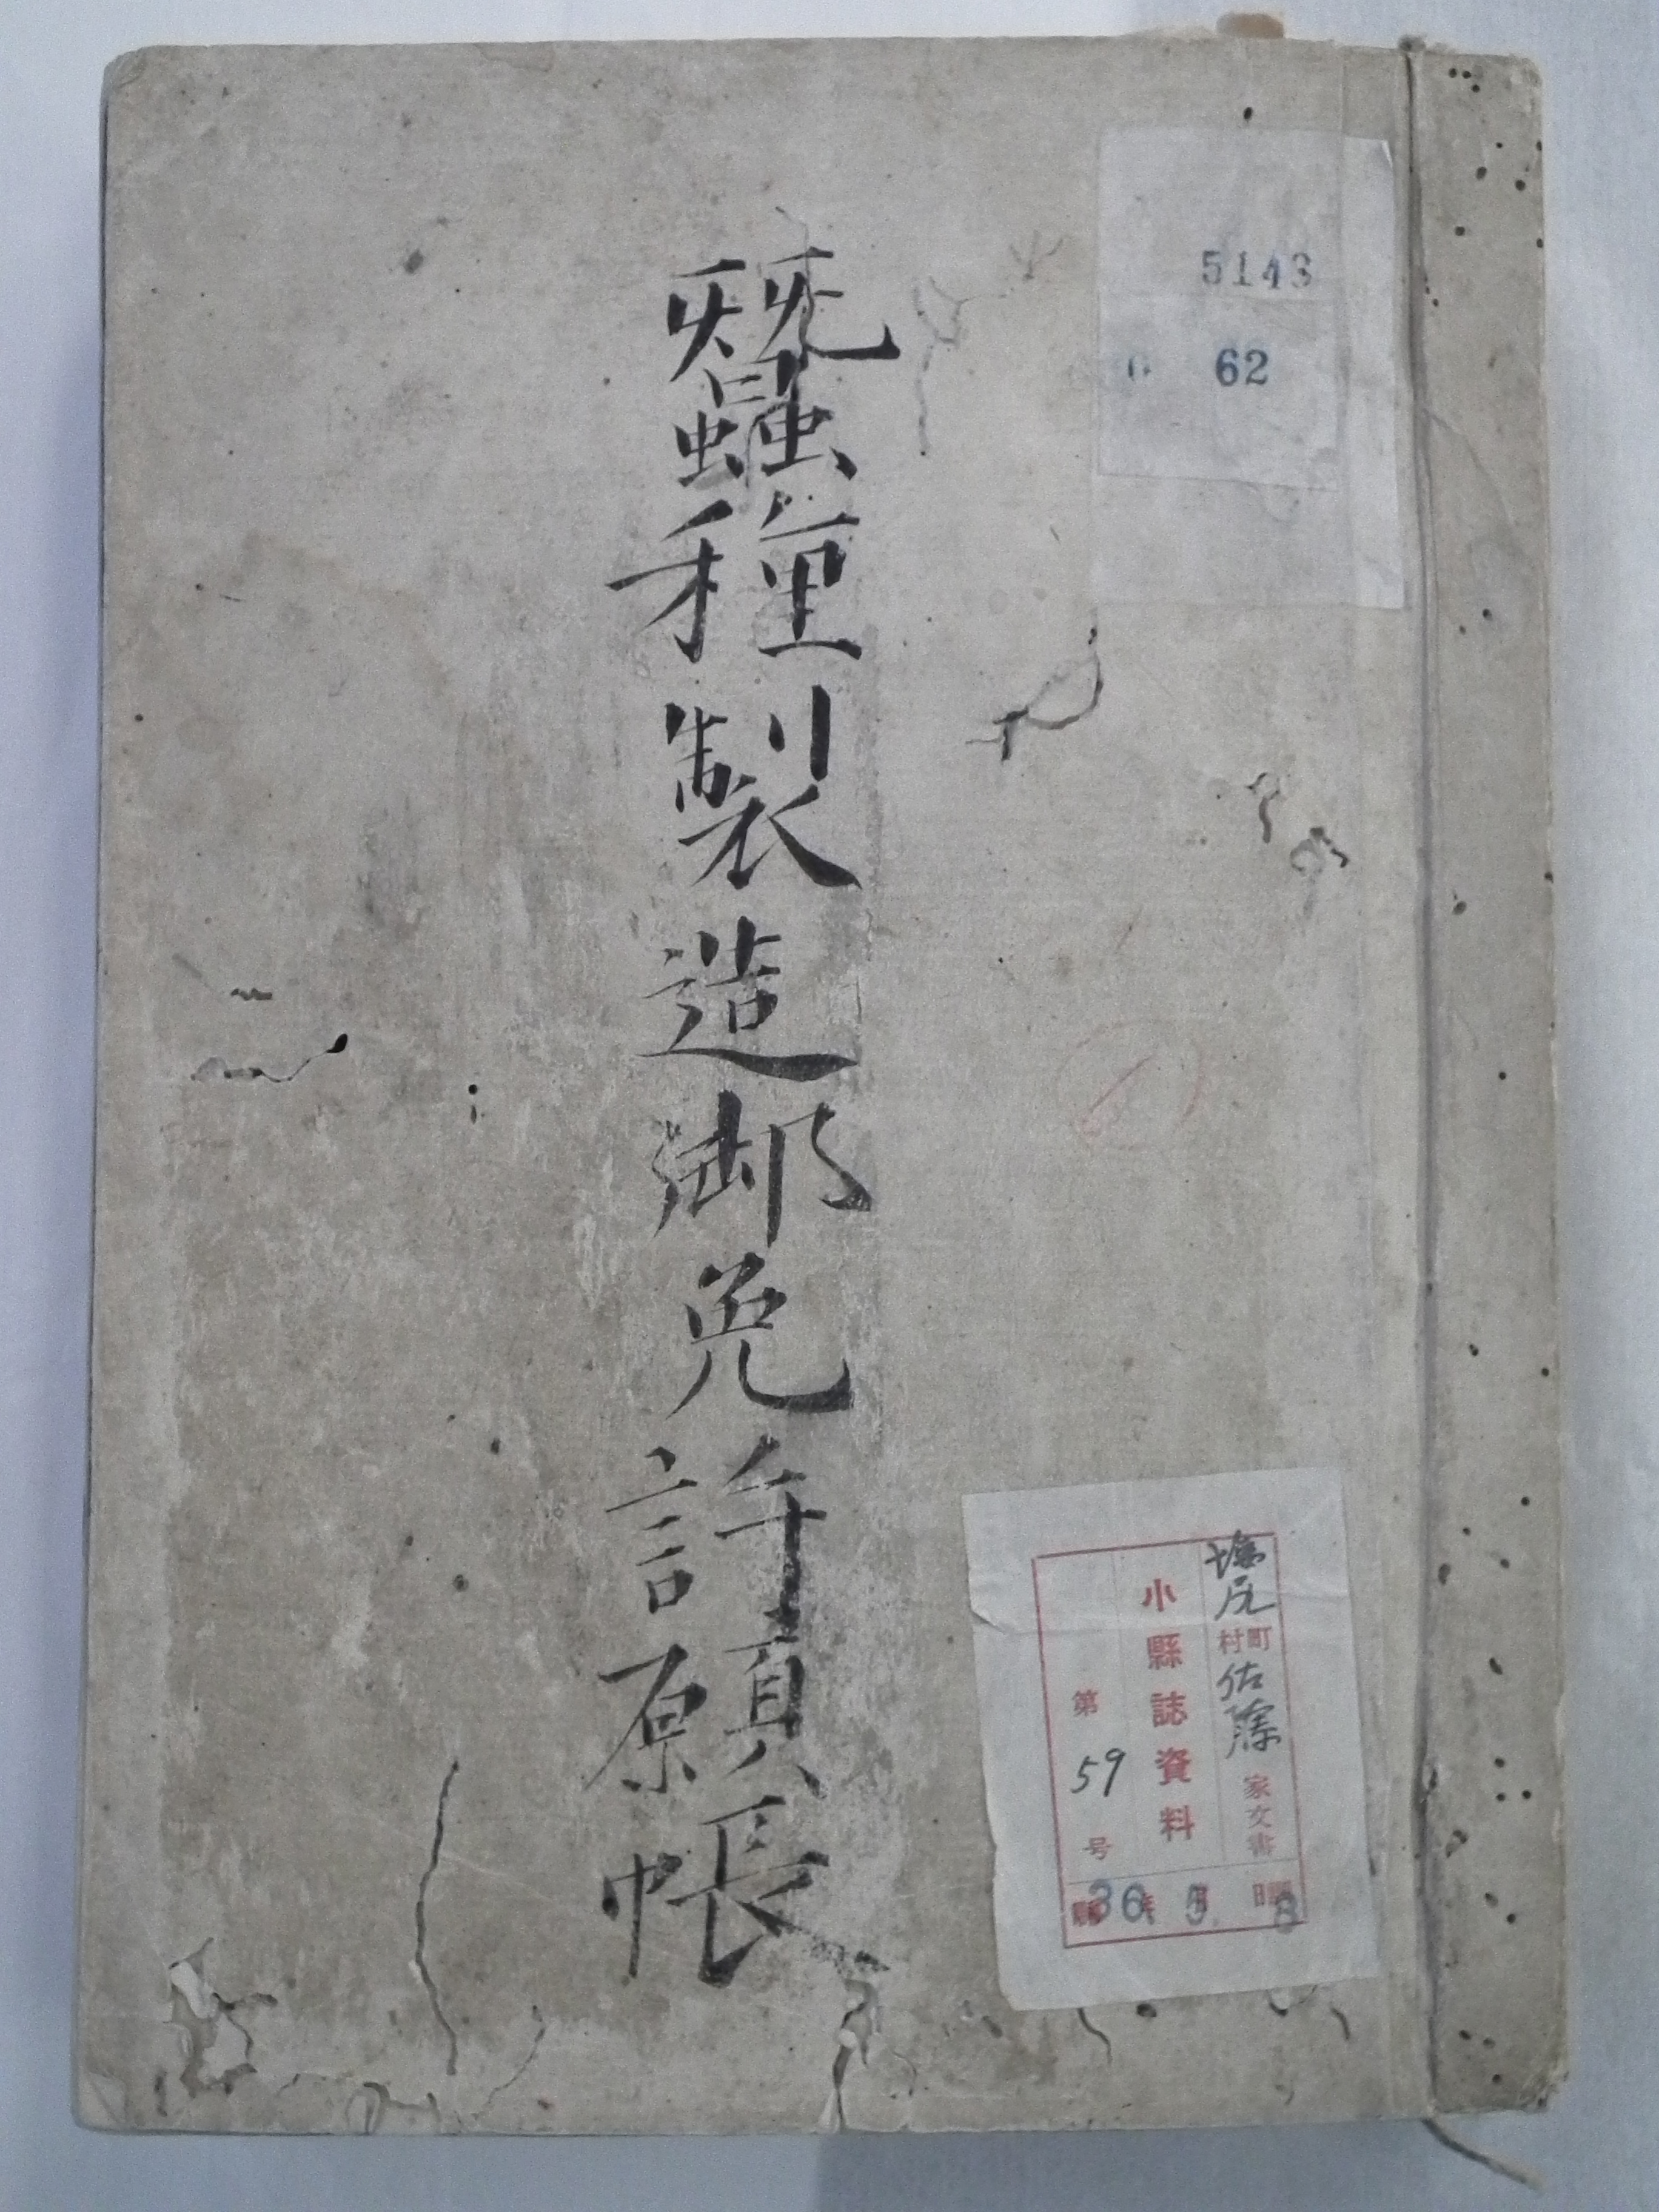 5143
62
蠶種製造御免許願帳
塩尻町村佐藤家文書
小縣誌資料
第59号
36 5 8